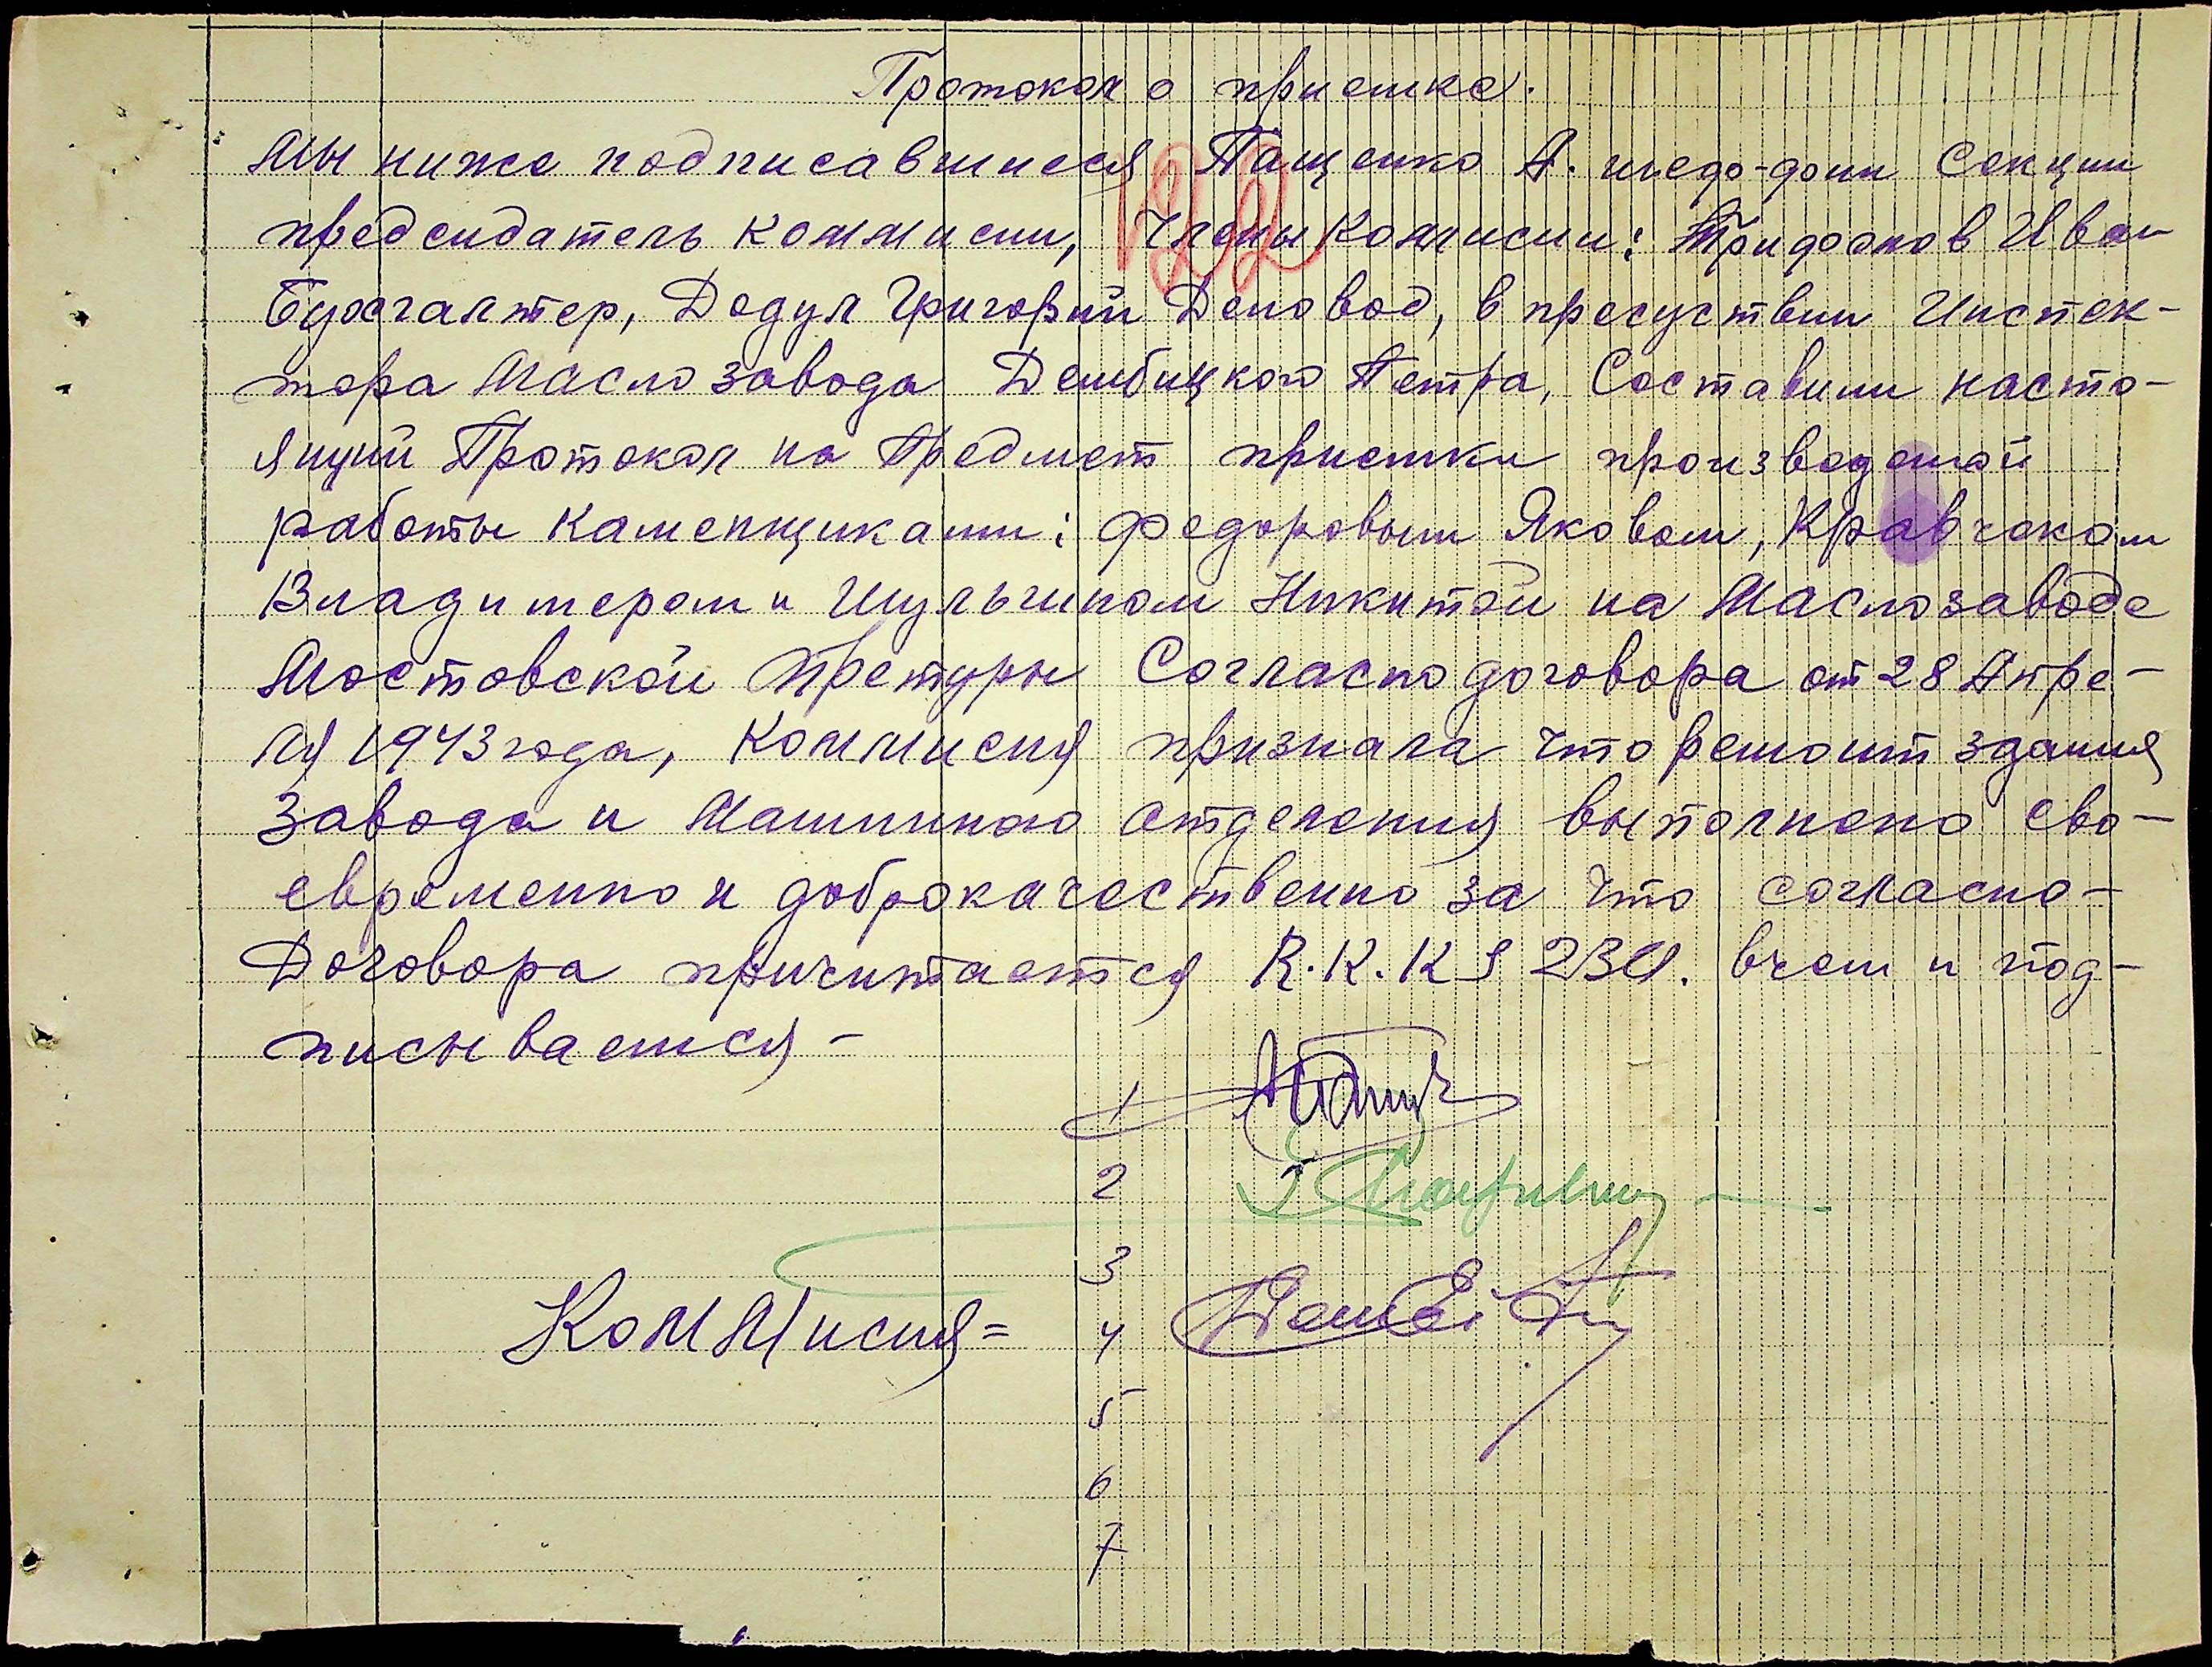 Протокол о приемке.
Мы ниже подписавшиеся Пащенко А. шеф-фин Секции
предсидатель коммисии, Члены Комисии: Трифонов Иван
Бухгалтер, Дедул Григорий Деловод, в пресуствии Инспек-
тора Маслозавода Дембицкого Петра, Составили насто-
ящий Протокол на предмет приемки производамой
работы каменщиками: Федоровым Яковом, Кравчеком
Владимером и Шульгином Никитой на Маслозаводе
Мостовской Претуры Согласно договора от 28 Апре-
ля 1943 года, Коммисия признала что ремонт здания
завода и Машинного отделения выполнено сво-
евременно и доброкачественно за что согласно-
Договора причитается R.K.KS 230. вчем и под-
писываемся-
122
1
2
3
Коммисия= 4
5
6
7